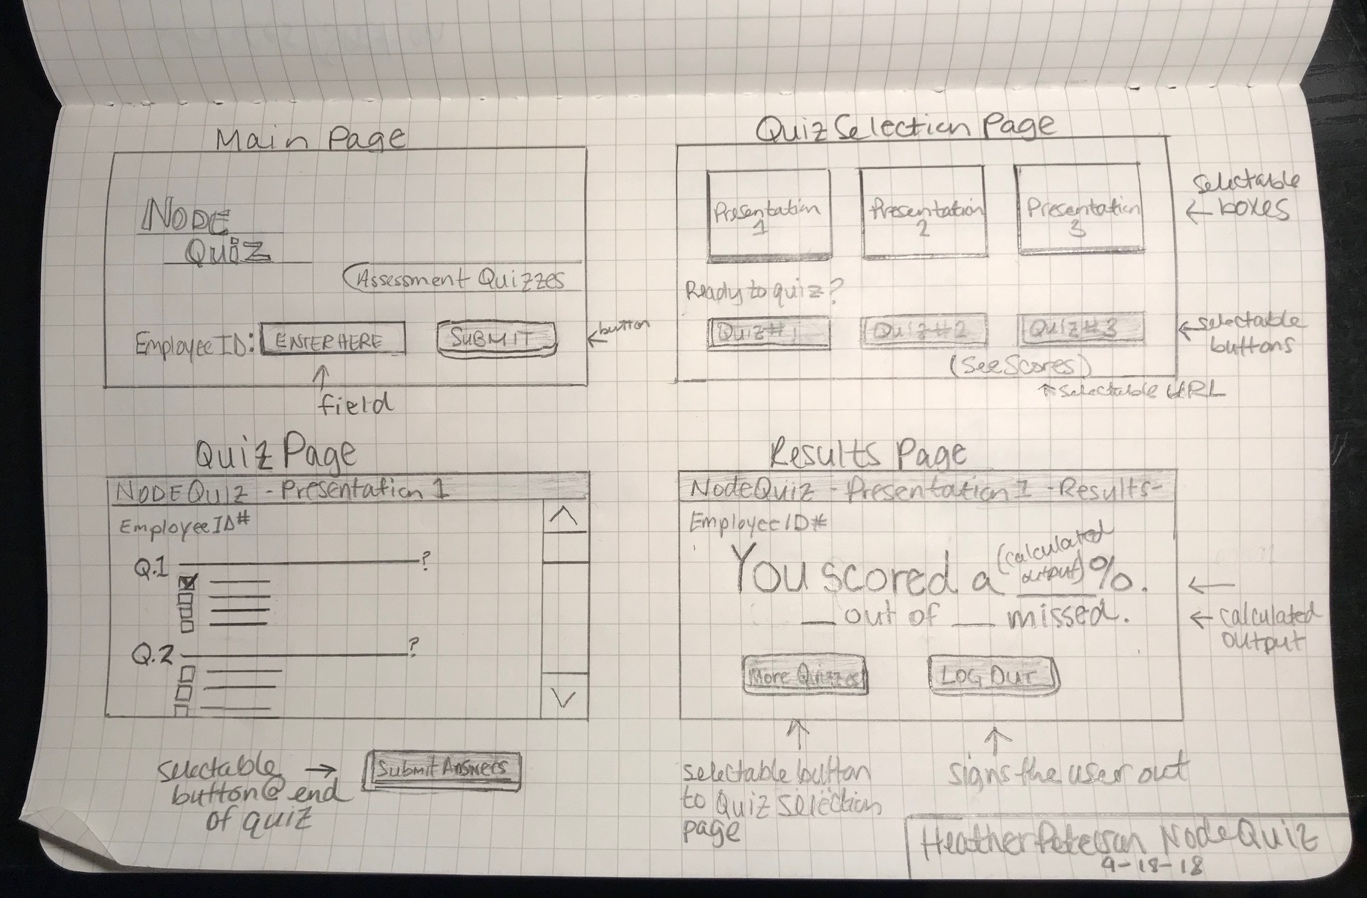 Main Page
NODE
Quiz
Assessment Quizzes
Employee ID:
ENTER HERE
SUBMIT
button
field
Quiz Selection Page
Presentation
1
Presentation
2
Presentation
3
selectable
boxes
Ready to quiz?
Quiz #1
Quiz #2
Quiz #3
selectable
buttons
(See Scores)
selectable URL
Quiz Page
NODE Quiz - Presentation 1
Employee ID#
Q.1 ?
Q.2 ?
selectable
button @ end
of quiz
Submit Answers
Results Page
NodeQuiz - Presentation 1 - Results-
Employee ID#
You scored a (calculated
output) %.
__ out of __ missed.
calculated
output
More Quizzes
LOG OUT
selectable button
to Quiz selection
page
signs the user out
Heather Peterson NodeQuiz
9-18-18